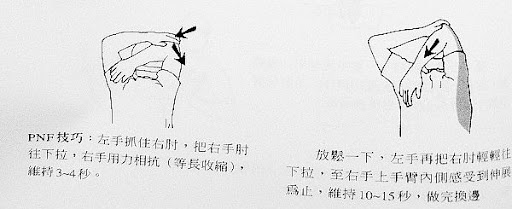 PNF技巧：左手抓住右肘，把右手肘
往下拉，右手用力相抗（等長收縮），
維持3~4秒。
放鬆一下，左手再把右肘輕輕往
下拉，至右手上手臂內側感受到伸展
為止，維持10~15秒，做完換邊